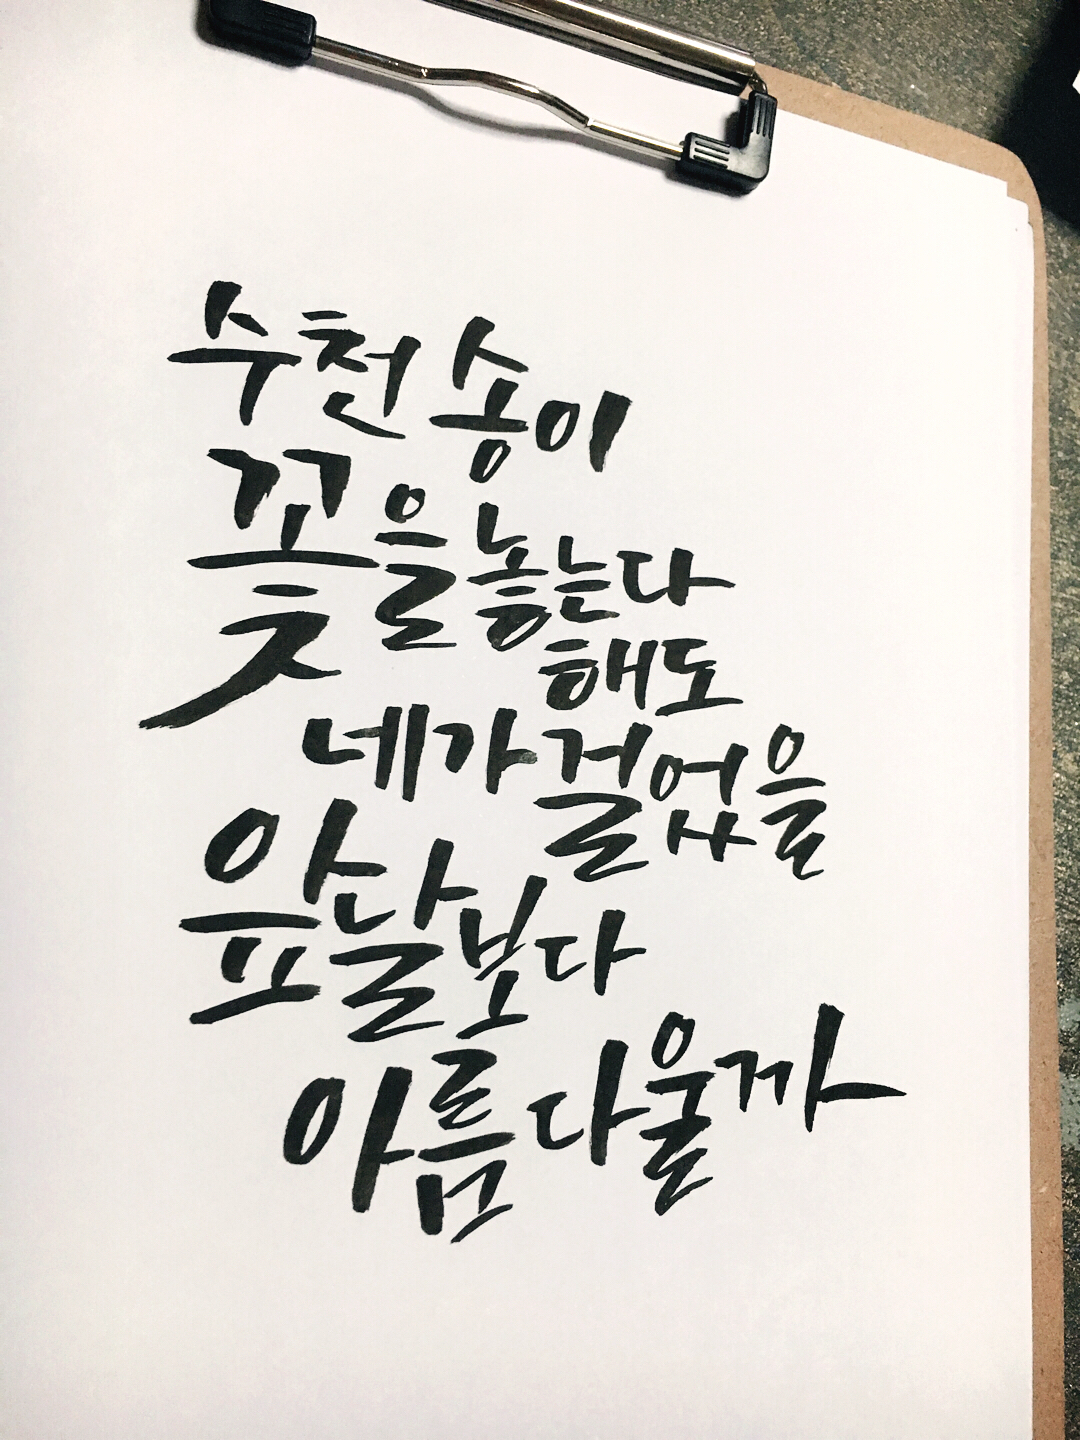 수천 송이
꽃을 놓는다
해도
네가 걸었을
앞날보다
아름다울까